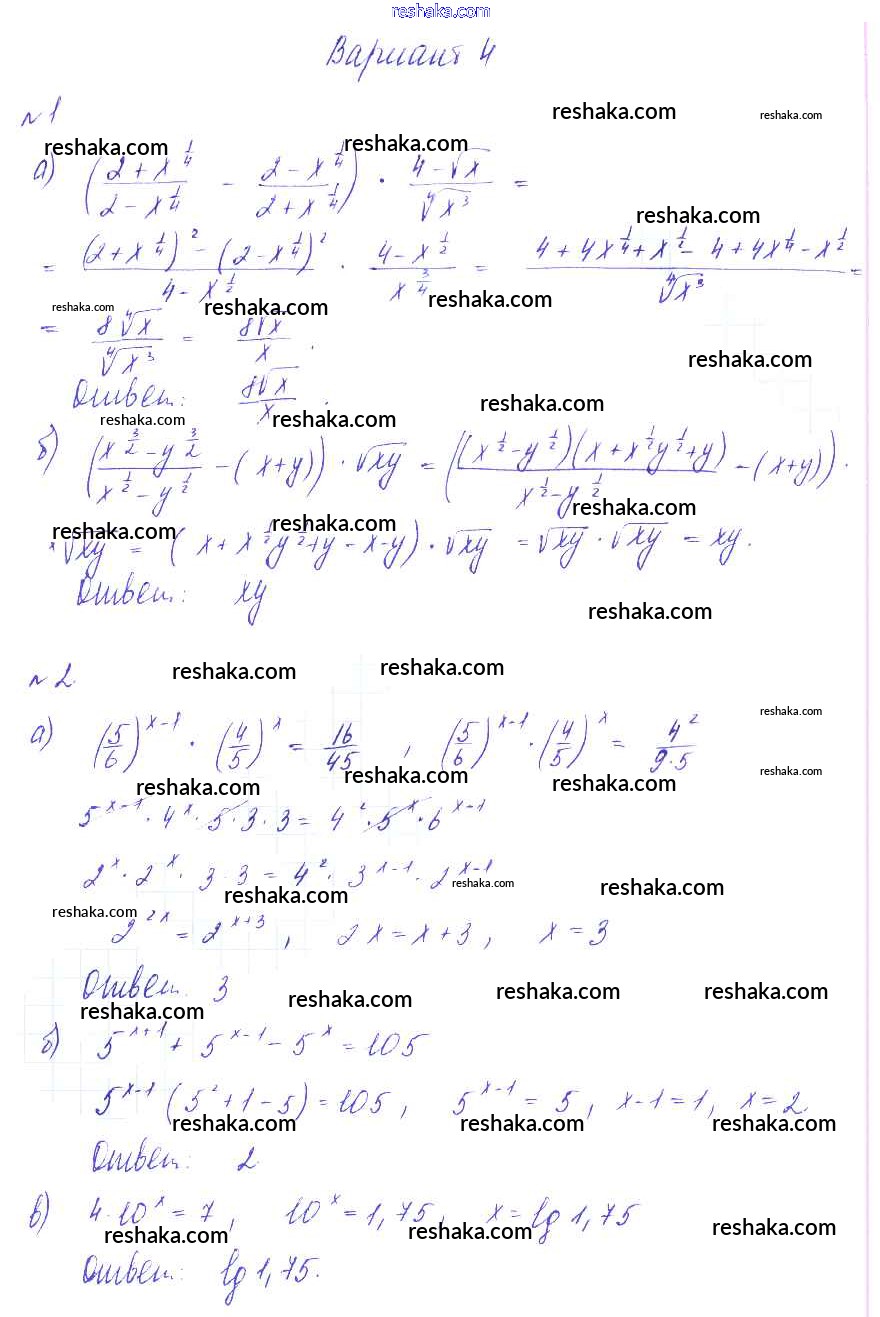 reshaka.com
Вариант 4
№1
reshaka.com reshaka.com
reshaka.com reshaka.com
а) ((2 + x^(1/4))/(2 - x^(1/4)) - (2 - x^(1/4))/(2 + x^(1/4))) · (4 - √x)/(⁴√x³) =
reshaka.com
= ((2 + x^(1/4))² - (2 - x^(1/4))²)/(4 - x^(1/2)) · (4 - x^(1/2))/(x^(3/4)) = (4 + 4x^(1/4) + x^(1/2) - 4 + 4x^(1/4) - x^(1/2))/(⁴√x³) =
reshaka.com reshaka.com reshaka.com
= (8⁴√x)/(⁴√x³) = (8√x)/x.
reshaka.com
Ответ: (8√x)/x.
reshaka.com reshaka.com reshaka.com
б) ((x^(3/2) - y^(3/2))/(x^(1/2) - y^(1/2)) - (x+y)) · √xy = (((x^(1/2) - y^(1/2))(x + x^(1/2)y^(1/2) + y))/(x^(1/2) - y^(1/2)) - (x+y)) ·
reshaka.com reshaka.com reshaka.com
· √xy = (x + x^(1/2)y^(1/2) + y - x - y) · √xy = √xy · √xy = xy.
Ответ: xy
reshaka.com
№2.
reshaka.com reshaka.com
reshaka.com
а) (5/6)^(x-1) · (4/5)^x = 16/45, (5/6)^(x-1) · (4/5)^x = 4²/(9·5)
reshaka.com reshaka.com reshaka.com reshaka.com
5^(x-1) · 4^x · 5 · 3 · 3 = 4² · 5^x · 6^(x-1)
2^x · 2^x · 3 · 3 = 4² · 3^(x-1) · 2^(x-1)
reshaka.com reshaka.com reshaka.com
reshaka.com
2^(2x) = 2^(x+3), 2x = x + 3, x = 3
Ответ. 3
reshaka.com reshaka.com reshaka.com reshaka.com
б) 5^(x+1) + 5^(x-1) - 5^x = 105
5^(x-1) (5² + 1 - 5) = 105, 5^(x-1) = 5, x-1 = 1, x = 2.
reshaka.com reshaka.com reshaka.com
Ответ: 2.
в) 4·10^x = 7, 10^x = 1,75, x = lg 1,75
reshaka.com reshaka.com reshaka.com
Ответ: lg 1,75.